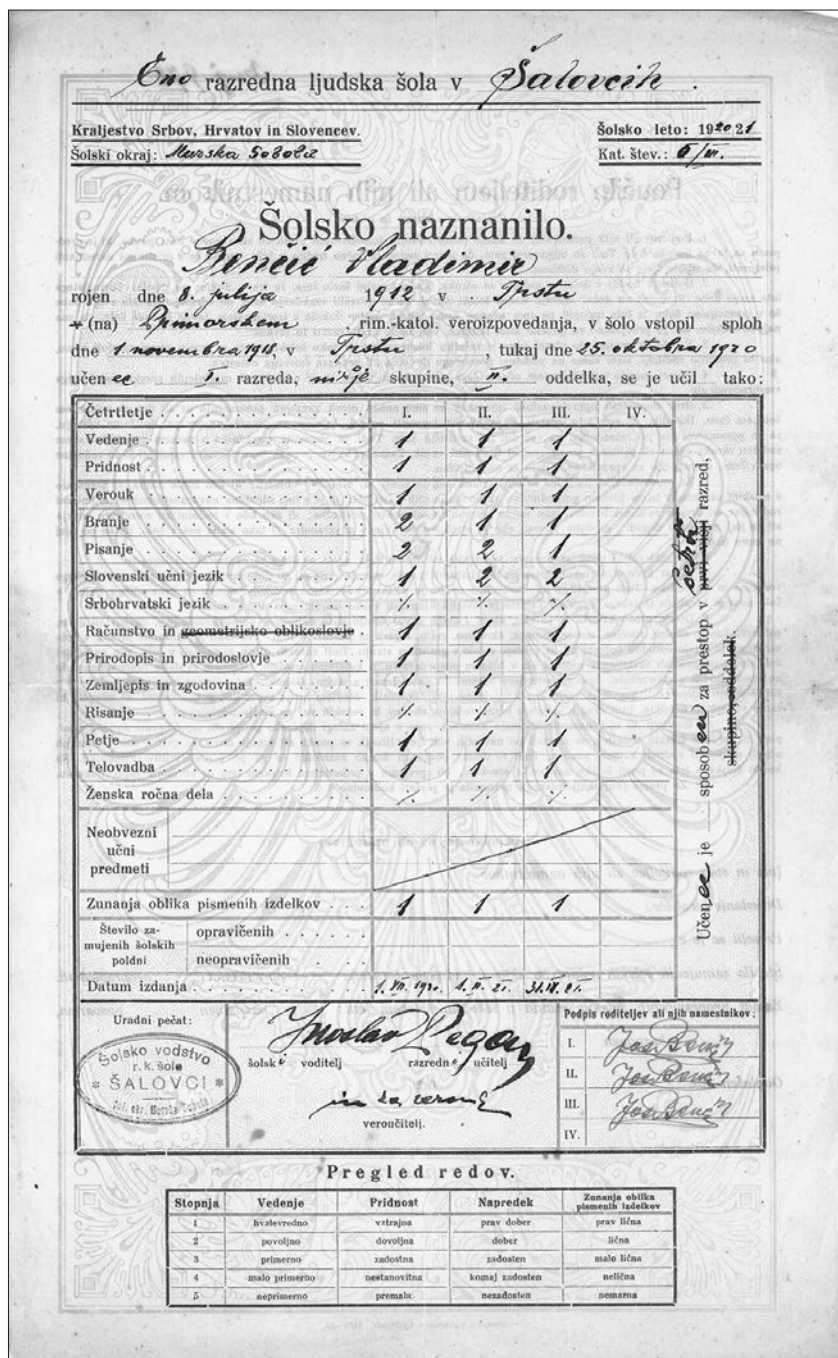 Eno razredna ljudska šola v Šalovcih.
Kraljestvo Srbov, Hrvatov in Slovencev.
Šolsko leto: 1920/21
Šolski okraj: Murska Sobota
Kat. štev.: 6/III.
Šolsko naznanilo.
Benčić Vladimir
rojen dne 8. julija 1912 v Trstu
*(na) Primorskem, rim.-katol. veroizpovedanja, v šolo vstopil sploh
dne 1. novembra 1918, v Trstu, tukaj dne 25. oktobra 1920
učenec I. razreda, nižje skupine, II. oddelka, se je učil tako:
Četrtletje I. II. III. IV.
Vedenje 1 1 1
Pridnost 1 1 1
Verouk 1 1 1
Branje 2 1 1
Pisanje 2 2 1
Slovenski učni jezik 1 2 2
Srbohrvatski jezik ⁒ ⁒ ⁒
Računstvo in geometrijsko oblikoslovje 1 1 1
Prirodopis in prirodoslovje 1 1 1
Zemljepis in zgodovina 1 1 1
Risanje ⁒ ⁒ ⁒
Petje 1 1 1
Telovadba 1 1 1
Ženska ročna dela ⁒ ⁒ ⁒
Neobvezni
učni
predmeti
Zunanja oblika pismenih izdelkov 1 1 1
Število za-
mujenih šolskih
poldni
opravičenih
neopravičenih
Datum izdania
Učenec je sposoben za prestop v prvi višji razred,
skupino, oddelek.
Uradni pečat:
Šolsko vodstvo
r. k. šole
* ŠALOVCI *
šolski voditelj razredni učitelj
in za
veroučitelj.
Podpis roditeljev ali njih namestnikov:
I. Jos Benčić
II. Jos Benčić
III. Jos Benčić
IV.
Pregled redov.
Stopnja Vedenje Pridnost Napredek Zunanja oblika pismenih izdelkov
1 hvalevredno vztrajna prav dober prav lična
2 povoljno dovoljna dober lična
3 primerno zadostna zadosten malo lična
4 malo primerno nestanovitna komaj zadosten nelična
5 neprimerno premala nezadosten nemarna